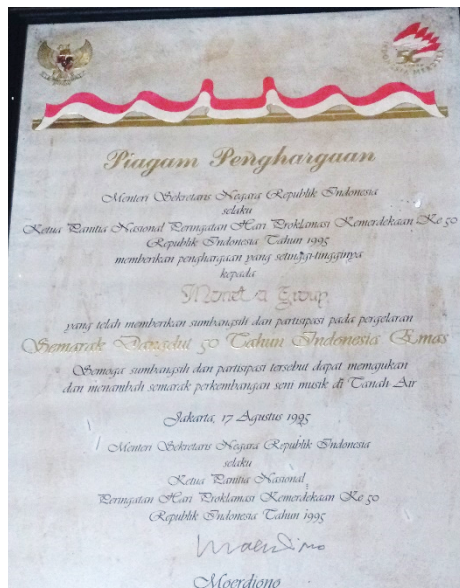 Piagam Penghargaan
Menteri Sekretaris Negara Republik Indonesia
selaku
Ketua Panitia Nasional Peringatan Hari Proklamasi Kemerdekaan Ke 50
Republik Indonesia Tahun 1995
memberikan penghargaan yang setinggi-tingginya
kepada
Group
yang telah memberikan sumbangsih dan partisipasi pada pergelaran
Semarak Dangdut 50 Tahun Indonesia Emas
Semoga sumbangsih dan partisipasi tersebut dapat memajukan
dan menambah semarak perkembangan seni musik di Tanah Air
Jakarta, 17 Agustus 1995
Menteri Sekretaris Negara Republik Indonesia
selaku
Ketua Panitia Nasional
Peringatan Hari Proklamasi Kemerdekaan Ke 50
Republik Indonesia Tahun 1995
Moerdiono
Moerdiono